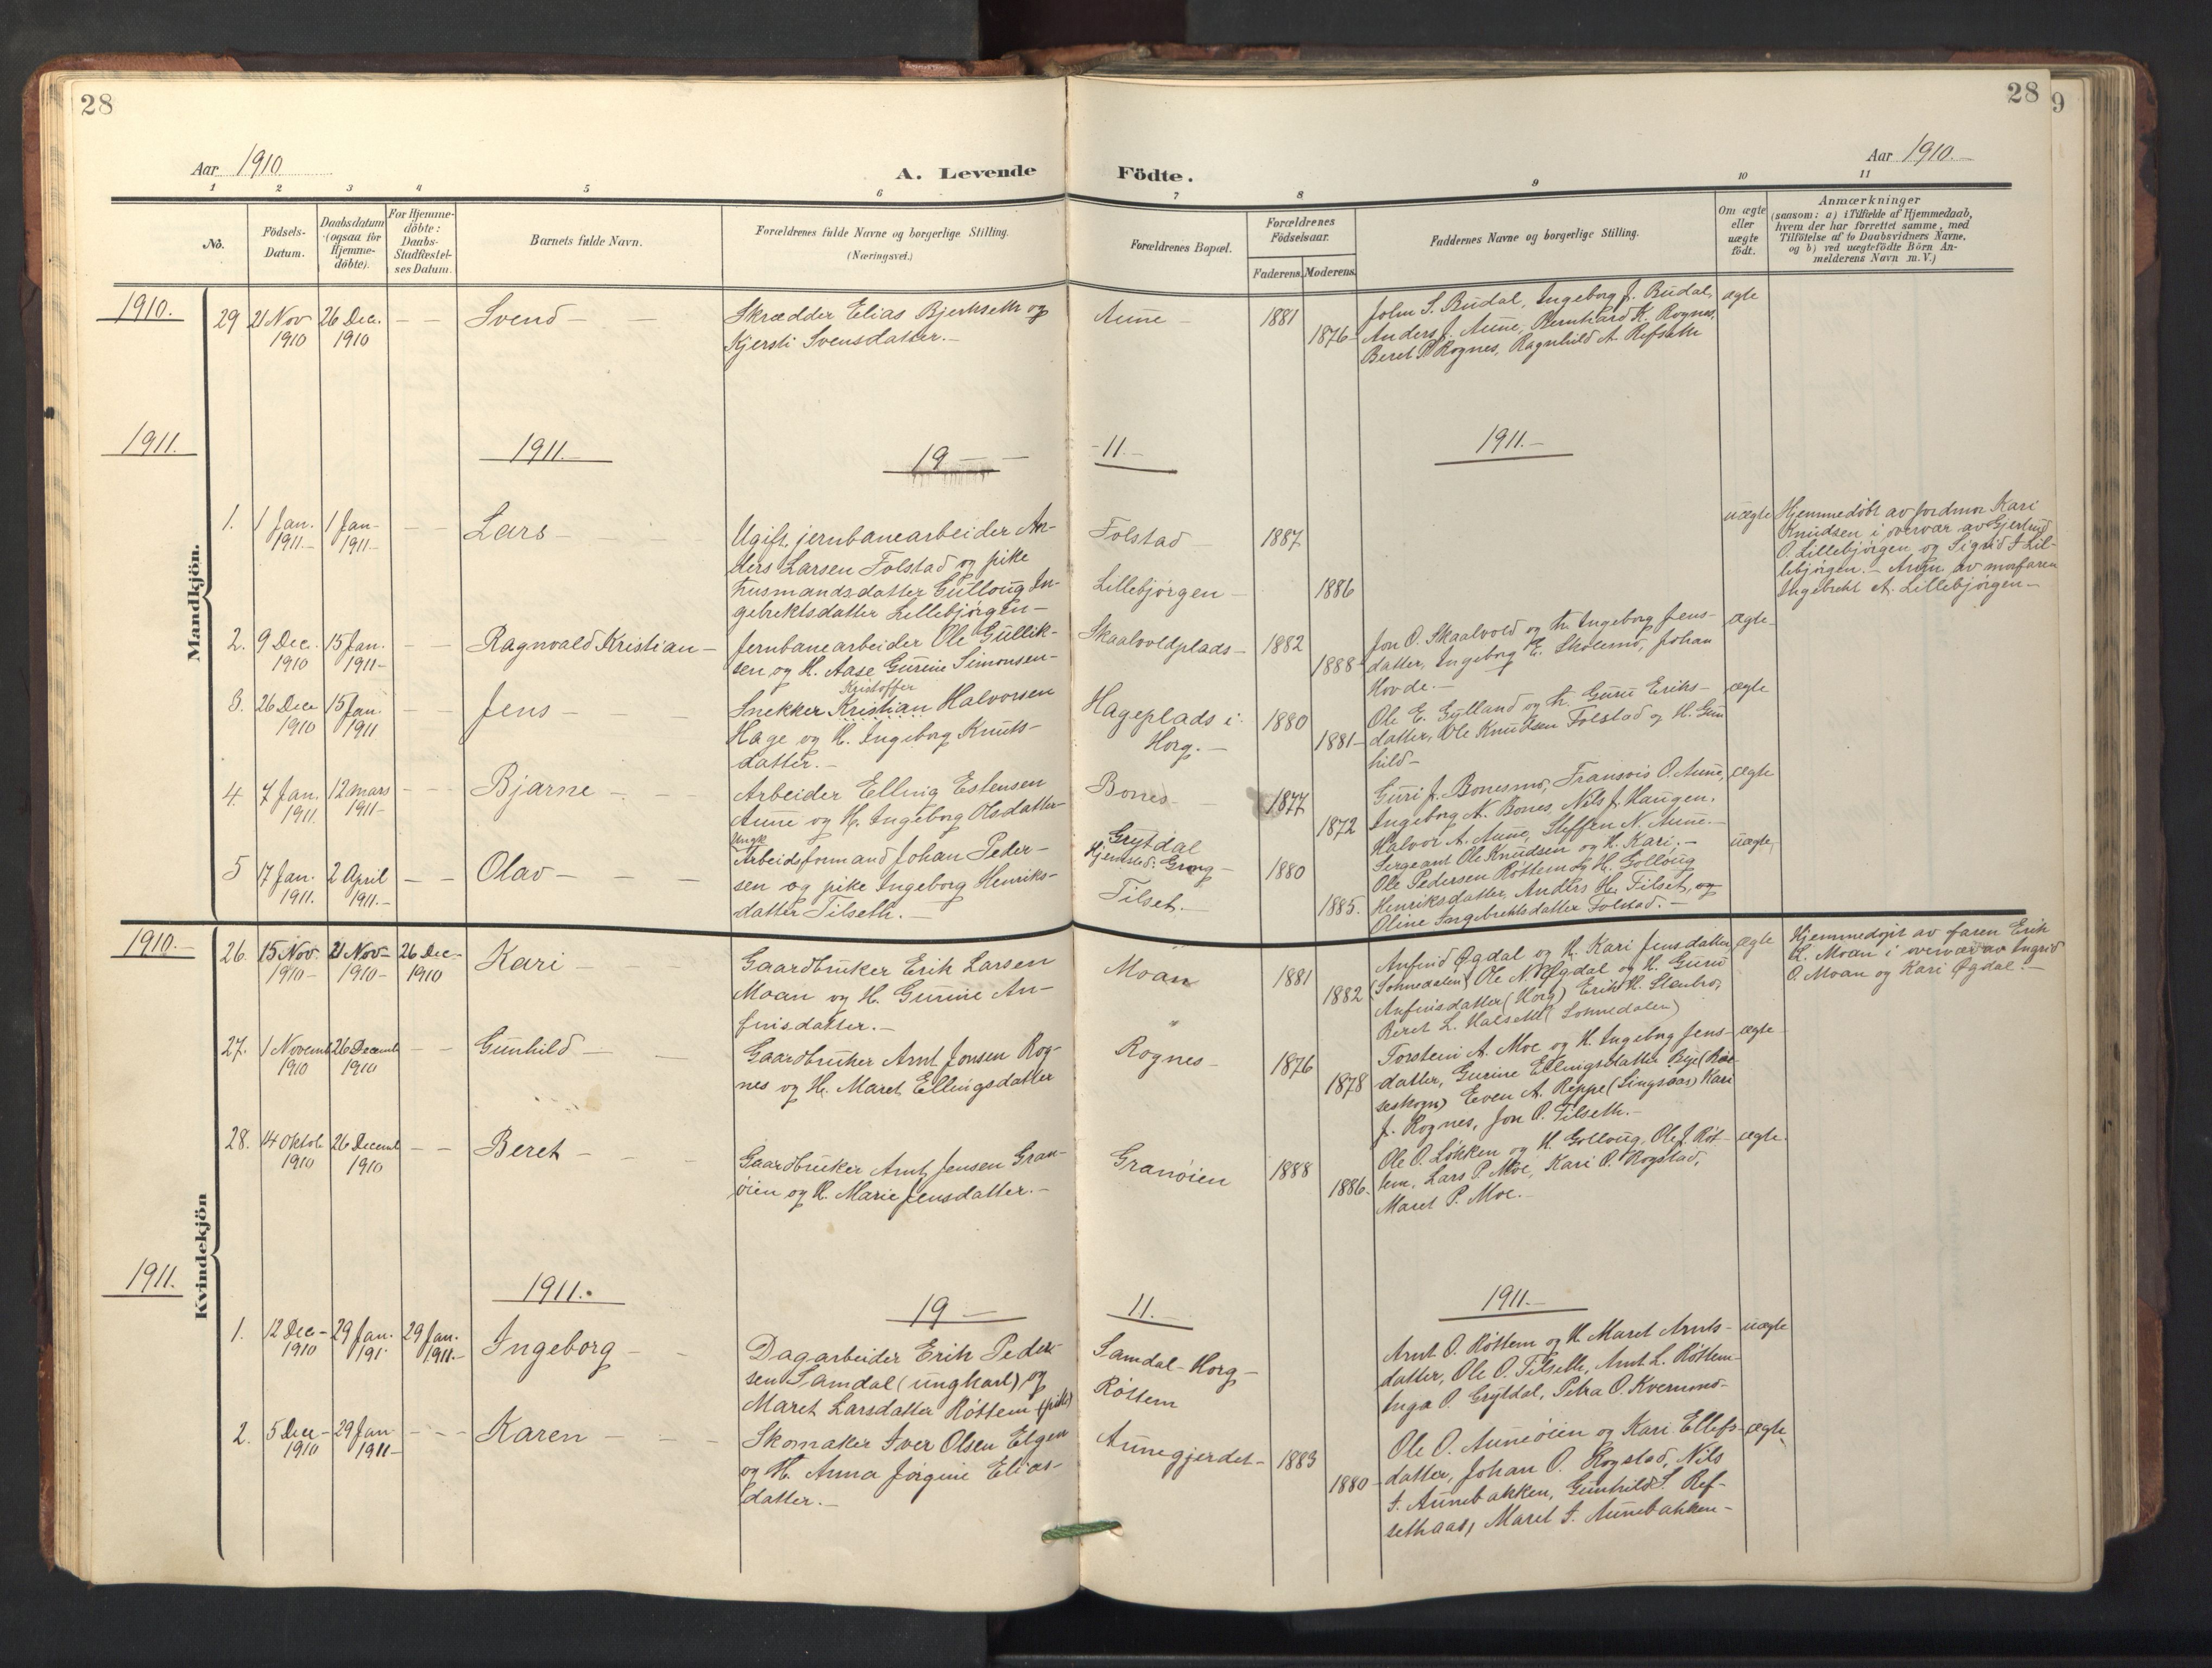 28
28
9
Aar 1910
A. Levende
Födte.
Aar 1910.—
1 2 3 4 5 6 7 8 9 10 11
No.
Födsels-
Datum.
Daabsdatum
(ogsaa for
Hjemme-
döbte).
For Hjemme-
döbte:
Daabs-
Stadfæstel-
ses Datum.
Barnets fulde Navn.
Forældrenes fulde Navne og borgerlige Stilling.
(Næringsvei.)
Forældrenes Bopæl.
Forældrenes
Födselsaar.
Faderens. Moderens.
Faddernes Navne og borgerlige Stilling.
Om ægte
eller
uægte
födt.
Anmærkninger
(saasom: a) i Tilfælde af Hjemmedaab,
hvem der har forrettet samme, med
Tilföielse af to Daabsvidners Navne,
og b) ved uægtefödte Börn An-
melderens Navn m. V.)
Mandkjön.
1910.
29 21 Nov 1910
26 Dec. 1910
Svend
Skrædder Elias Bjerkseth og
Kjersti Svensdatter.—
Aune
1881
1876
John S. Budal, Ingeborg J. Budal,
Anders J. Aune, Bernhard K. Rognes,
Beret P. Rognes, Ragnhild A. Refseth
ægte
1911.
1911.—
19—
—11.—
1911.—
1. 1 Jan. 1911.—
1 Jan— 1911—
Lars
Ugift jernbanearbeider An-
ders Larsen Folstad og pike
husmandsdatter Gulloug In-
gebrektsdatter Lillebjørgen—
Folstad
Lillebjørgen
1887
1886
uægte
Hjemmedøbt av jordmor Kari
Knudsen i overvær av Gjertrud
O. Lillebjørgen og Sigrid I. Lil-
lebjørgen.— Anm. av morfaren
Ingebrekt A. Lillebjørgen—
2. 9 Dec. 1910
15 Jan. 1911—
Ragnvald Kristian
Jernbanearbeider Ole Gullik-
sen og H. Aase Gurine Simonsen—
Skaalvoldplads—
1882
1888
Jon O. Skaalvold og H. Ingeborg Jens-
datter, Ingeborg E. Skolemo, Johan
Hovde.—
ægte
3. 26 Dec 1910
15 Jan. 1911
Jens
Kristoffer
Snekker Kristian Halvorsen
Hage og H. Ingeborg Knuts-
datter.—
Hageplads i
Horg.—
1880
1881
Ole E. Gylland og H. Guru Eriks-
datter, Ole Knudsen Folstad og H. Gun
hild—
ægte
4. 7 Jan. 1911.
12 mars 1911—
Bjarne
Arbeider Elling Estensen
Aune og H. Ingeborg Olsdatter
Bones
1877
1872
Guri J. Bonesmo, Fransois O. Aune,
Ingeborg N. Bones, Nils J. Haugen,
Halvor A. Aune, Steffen N. Aune.—
ægte
5 17 Jan. 1911.
2 April 1911.—
Olav
Ungk
Arbeidsformand Johan Peder-
sen og pike Ingeborg Henriks-
datter Tilseth.—
Grytdal
Hjemsted: Grong
Tilset.—
1880
1885.
Sergeant Ole Knudsen og H. Kari.—
Ole Pedersen Røttem og H. Golloug
Henriksdatter, Anders H. Tilset, og
Oline Ingebrektsdatter Folstad.—
uægte
Kvindekjön
1910.—
26. 15 Nov. 1910—
21 Nov— 1910—
26 Dec— 1910
Kari
Gaardbruker Erik Larsen
Moan og H. Gurine An-
finsdatter.—
Moan
1881
1882
Anfind Øgdal og H. Kari Jensdatter
(Soknedalen), Ole N. Øgdal og H. Guru
Anfinsdatter (Horg) Erik H. Stenbro,
Beret L. Halseth (Soknedalen)
ægte
Hjemmedøpt av faren Erik
L. Moan i overvær av Ingrid
O. Moan og Kari Øgdal.—
27. 1 Novemb 1910
26 Decemb 1910
Gunhild
Gaardbruker Arnt Jonsen Rog-
nes og H. Maret Ellingsdatter
Rognes
1876
1878
Torstein A. Moe og H. Ingeborg Jens-
datter, Gurine Ellingsdatter Bye (Bør-
seskogn) Even A. Reppe (Singsaas) Kari
J. Rognes, Jon P. Tilseth.—
ægte
28. 14 Oktob 1910
26 Decemb 1910
Beret
Gaardbruker Arnt Jensen Gran-
øien og H. Marie Jensdatter.—
Granøien
1888
1886.
Ole O. Løkken og H. Golloug, Ole J. Røt-
tem, Lars P. Moe, Kari O. Rogstad,
Maret P. Moe.—
ægte
1911.
1911.
19—
11.—
1911.—
1. 12 Dec— 1910
29 Jan. 191.
29 Jan. 1911.—
Ingeborg
Dagarbeider Erik Peder-
sen Samdal (ungkarl) og
Maret Larsdatter Røttem (pike)
Samdal—Horg—
Røttem
Arnt O. Røttem og H. Maret Arnts-
datter, Ole O. Tilseth, Arnt L. Røttem—
Inga O. Grytdal, Petra O. Kvernmo—
uægte
2. 5 Dec— 1910
29 Jan 1911—
Karen
Skomaker Iver Olsen Elgen
og H. Anna Jørgine Elias-
datter.—
Aunegjerdet—
1883
1880
Ole O. Auneøien og Kari Ellefs-
datter, Johan O. Rogstad, Nils
I. Aunebakken, Gunhild S. Ref-
sethaas, Maret I. Aunebakken—
ægte